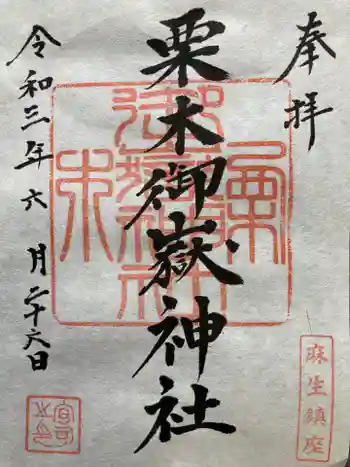 奉拝
麻生鎮座
栗木御嶽神社
栗木御嶽神社
令和三年六月二十六日
宮司之印